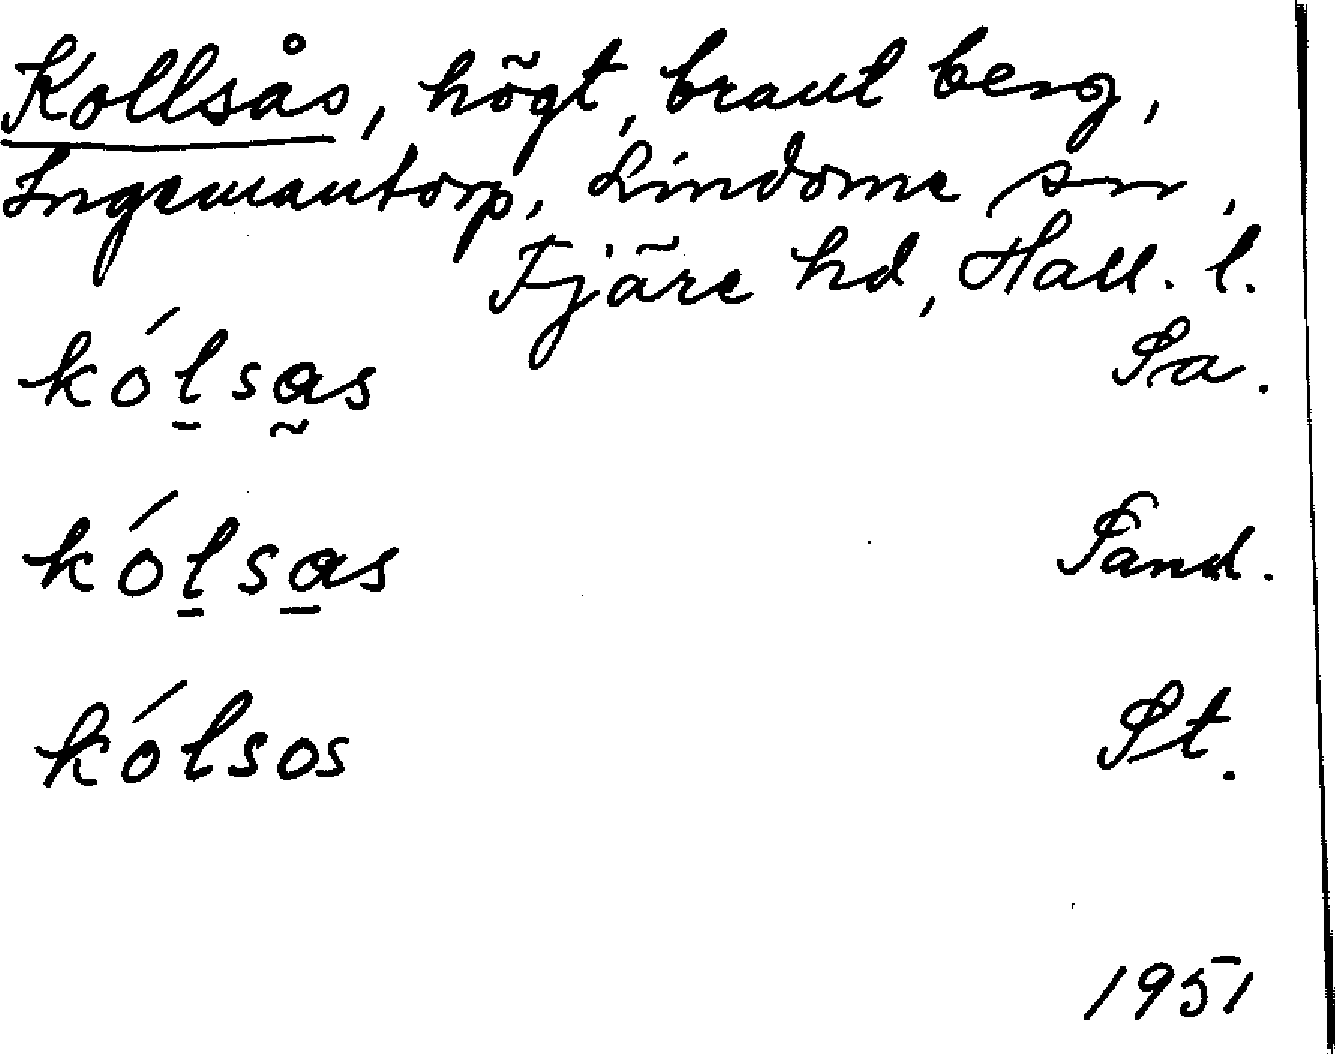 Kollsås, högt, brant berg,
Ingemantorp, Lindome sn,
Fjäre hd, Hall. l.
kó̱lsa̰s Pa.
kóḻsa̱s Pand.
kólsos Pt.
1951